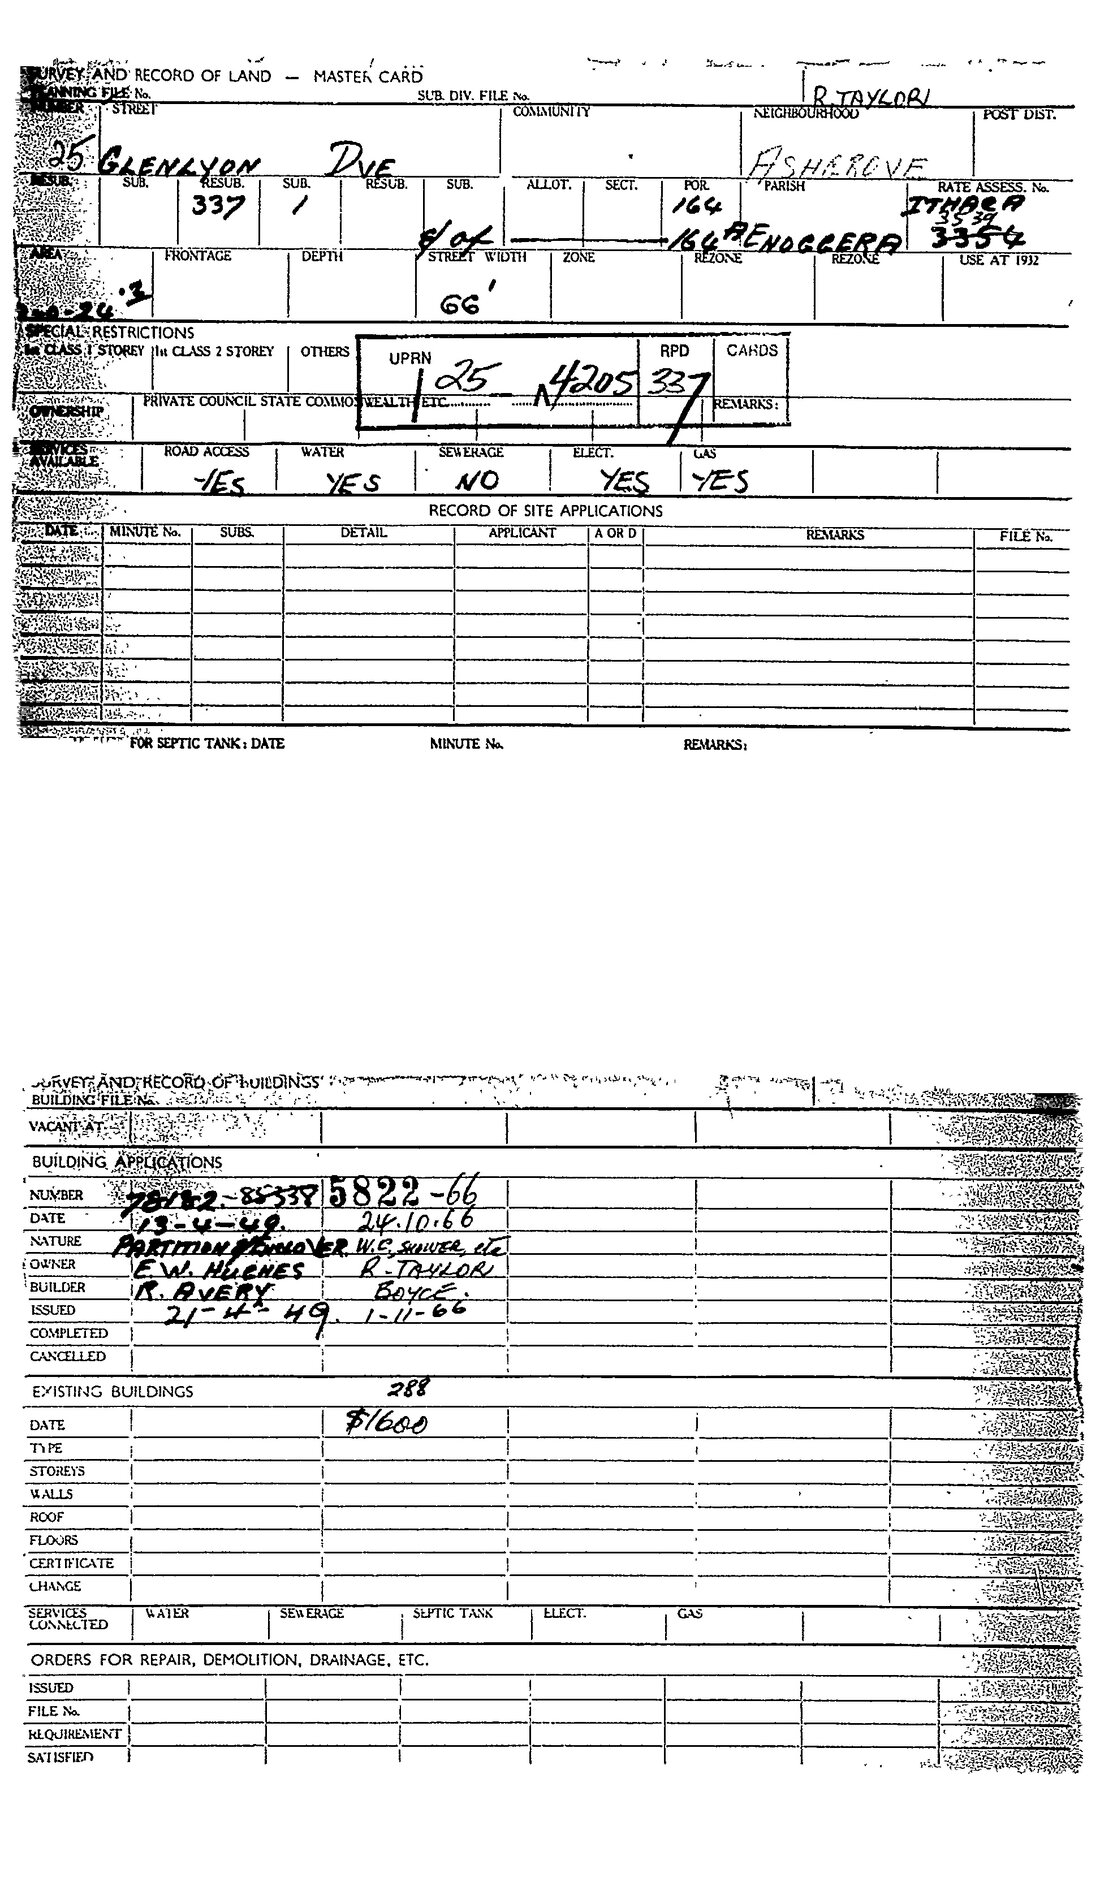 SURVEY AND RECORD OF LAND — MASTER CARD
PLANNING FILE No. SUB. DIV. FILE No. R. TAYLOR
NUMBER STREET COMMUNITY NEIGHBOURHOOD POST DIST.
25 GLENLYON DVE ASHGROVE
RESUB. SUB. RESUB. SUB. RESUB. SUB. ALLOT. SECT. POR. PARISH RATE ASSESS. No.
337 1 164 ITHACA
3539
of 164A ENOGGERA 3354
AREA FRONTAGE DEPTH STREET WIDTH ZONE REZONE REZONE USE AT 1932
66'
SPECIAL RESTRICTIONS
1st CLASS 1 STOREY 1st CLASS 2 STOREY OTHERS UPRN RPD CARDS
25 - 4205 337
OWNERSHIP PRIVATE COUNCIL STATE COMMONWEALTH ETC. REMARKS:
SERVICES AVAILABLE ROAD ACCESS WATER SEWERAGE ELECT. GAS
YES YES NO YES YES
RECORD OF SITE APPLICATIONS
DATE MINUTE No. SUBS. DETAIL APPLICANT A OR D REMARKS FILE No.
FOR SEPTIC TANK: DATE MINUTE No. REMARKS:
SURVEY AND RECORD OF BUILDINGS
BUILDING FILE No.
VACANT AT
BUILDING APPLICATIONS
NUMBER 78182-85338 5822-66
DATE 13-4-49. 24.10.66
NATURE PARTITION W.C, SHOWER, etc
OWNER E.W. HUGHES R. TAYLOR
BUILDER R. AVERY BOYCE.
ISSUED 21-4-49. 1-11-66
COMPLETED
CANCELLED
EXISTING BUILDINGS 288
DATE $1600
TYPE
STOREYS
WALLS
ROOF
FLOORS
CERTIFICATE
CHANGE
SERVICES CONNECTED WATER SEWERAGE SEPTIC TANK ELECT. GAS
ORDERS FOR REPAIR, DEMOLITION, DRAINAGE, ETC.
ISSUED
FILE No.
REQUIREMENT
SATISFIED